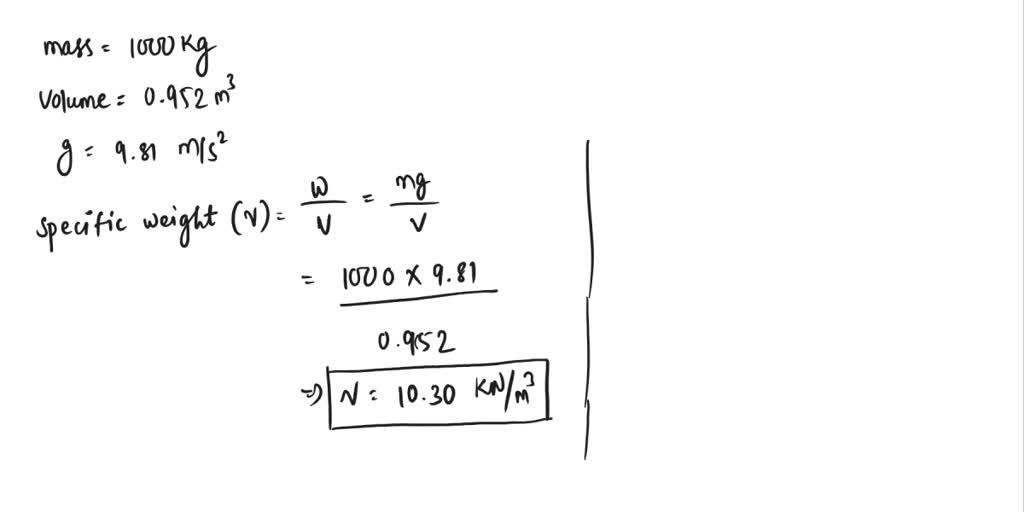 mass = 1000 Kg
Volume = 0.952 m³
g = 9.81 m/s²
Specific weight (γ) = W/V = mg/V
= 1000 × 9.81
0.952
⇒ γ = 10.30 KN/m³